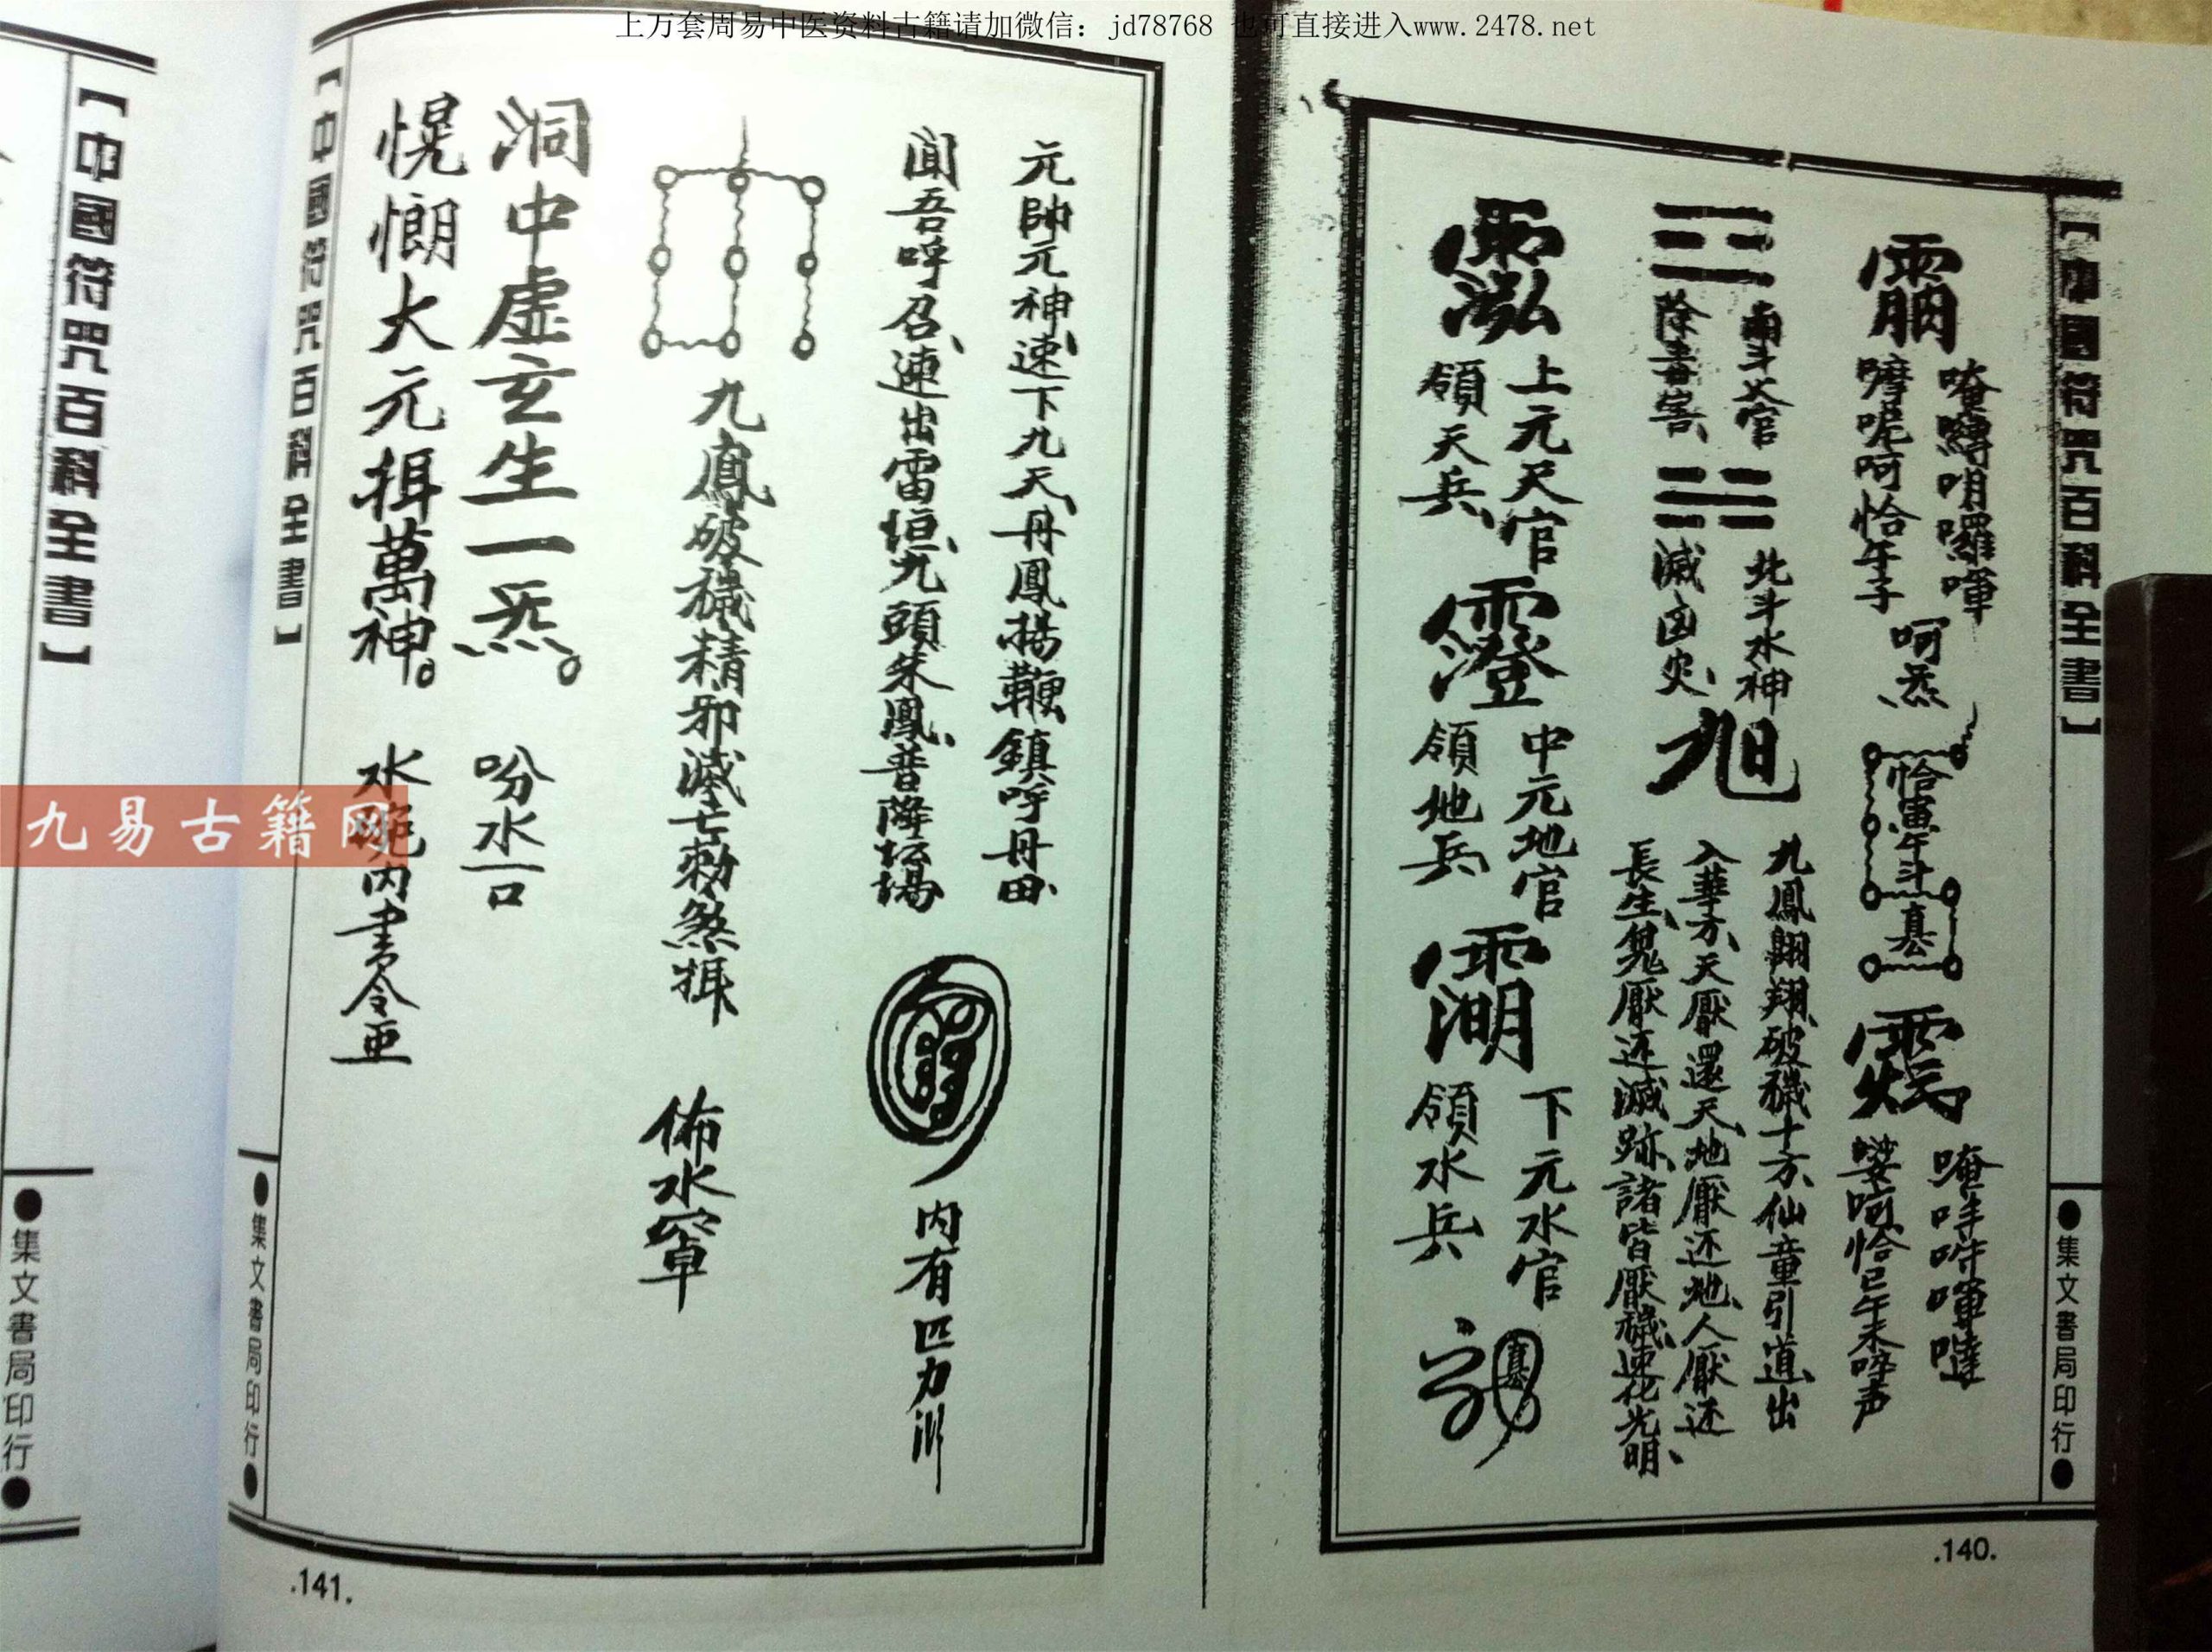 上万套周易中医资料古籍请加微信：jd78768 也可直接进入www.2478.net
【中國符咒百科全書】
●集文書局印行●
呵炁
恰寅午斗
唵吽吽嗱噠
南斗火官
除毒害、
北斗水神
滅凶災、
九鳳翱翔、破穢十方、仙童引道、出
入華方、天厭還天、地厭还地、人厭还
長生、鬼厭还滅跡、諸皆厭穢、速化光明、
上元天官
領天兵、
澄
中元地官
領地兵
下元水官
領水兵
.140.
元帥元神、速下九天、丹鳳揚鞭、鎮呼丹田
聞吾呼召、速出雷垣、九頭朱鳳、普降坛場
內有四力川
九鳳破穢精邪滅亡勅煞揖
佈水罩
洞中虛玄生一炁。
吩水一口
愰悯大元揖萬神。
水碗內書令
【中國符咒百科全書】
●集文書局印行●
.141.
【中國符咒百科全書】
●集文書局印行●
九易古籍网